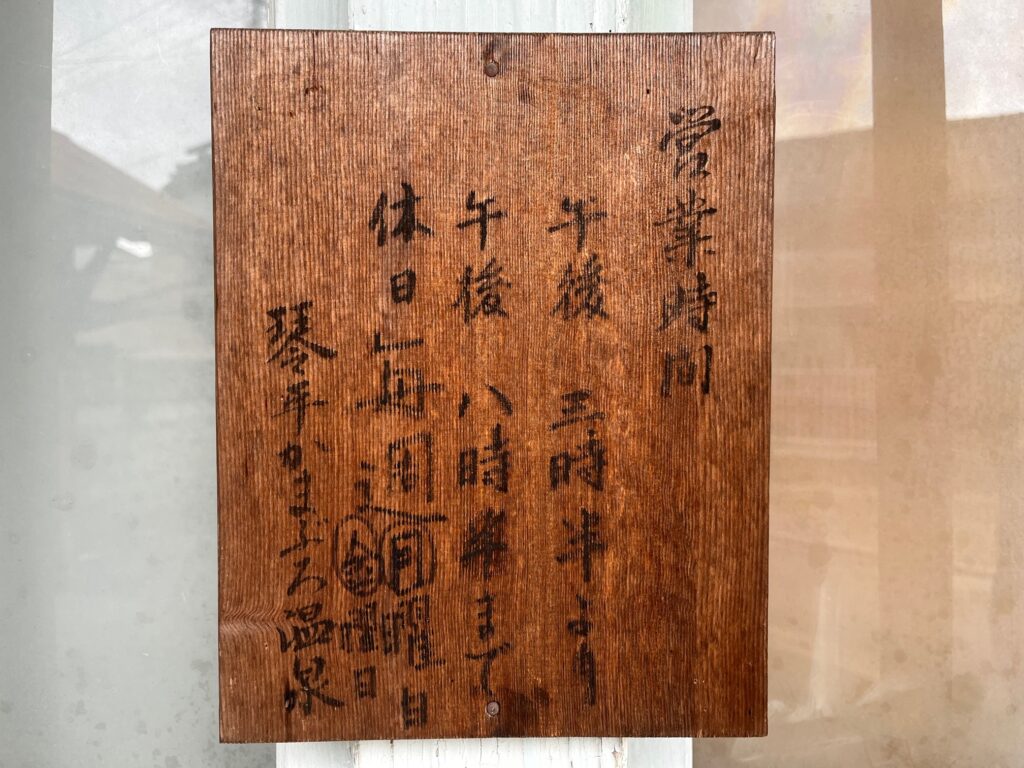 営業時間
午後三時半より
午後八時半まで
休日毎週月曜日
金曜日
琴平かまぶろ温泉